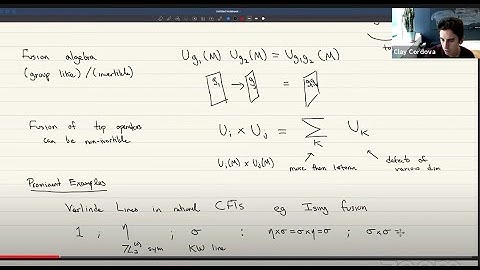 Clay Cordova
to
Fusion algebra
(group like)/(invertible)
U_{g_1}(M) U_{g_2}(M) = U_{g_1g_2}(M)
g_1 → g_2 = g_1g_2
Fusion of top operators
can be non-invertible
U_i × U_j = ∑_K U_K
U_i(M) × U_j(M)
more than 1 term
defects of
various dim
Prominent Examples
Verlinde Lines in rational CFTs eg Ising fusion
1 ; η ; σ : η×σ=σ×η=σ ; σ×σ=
ℤ_2^{(0)} sym KW line